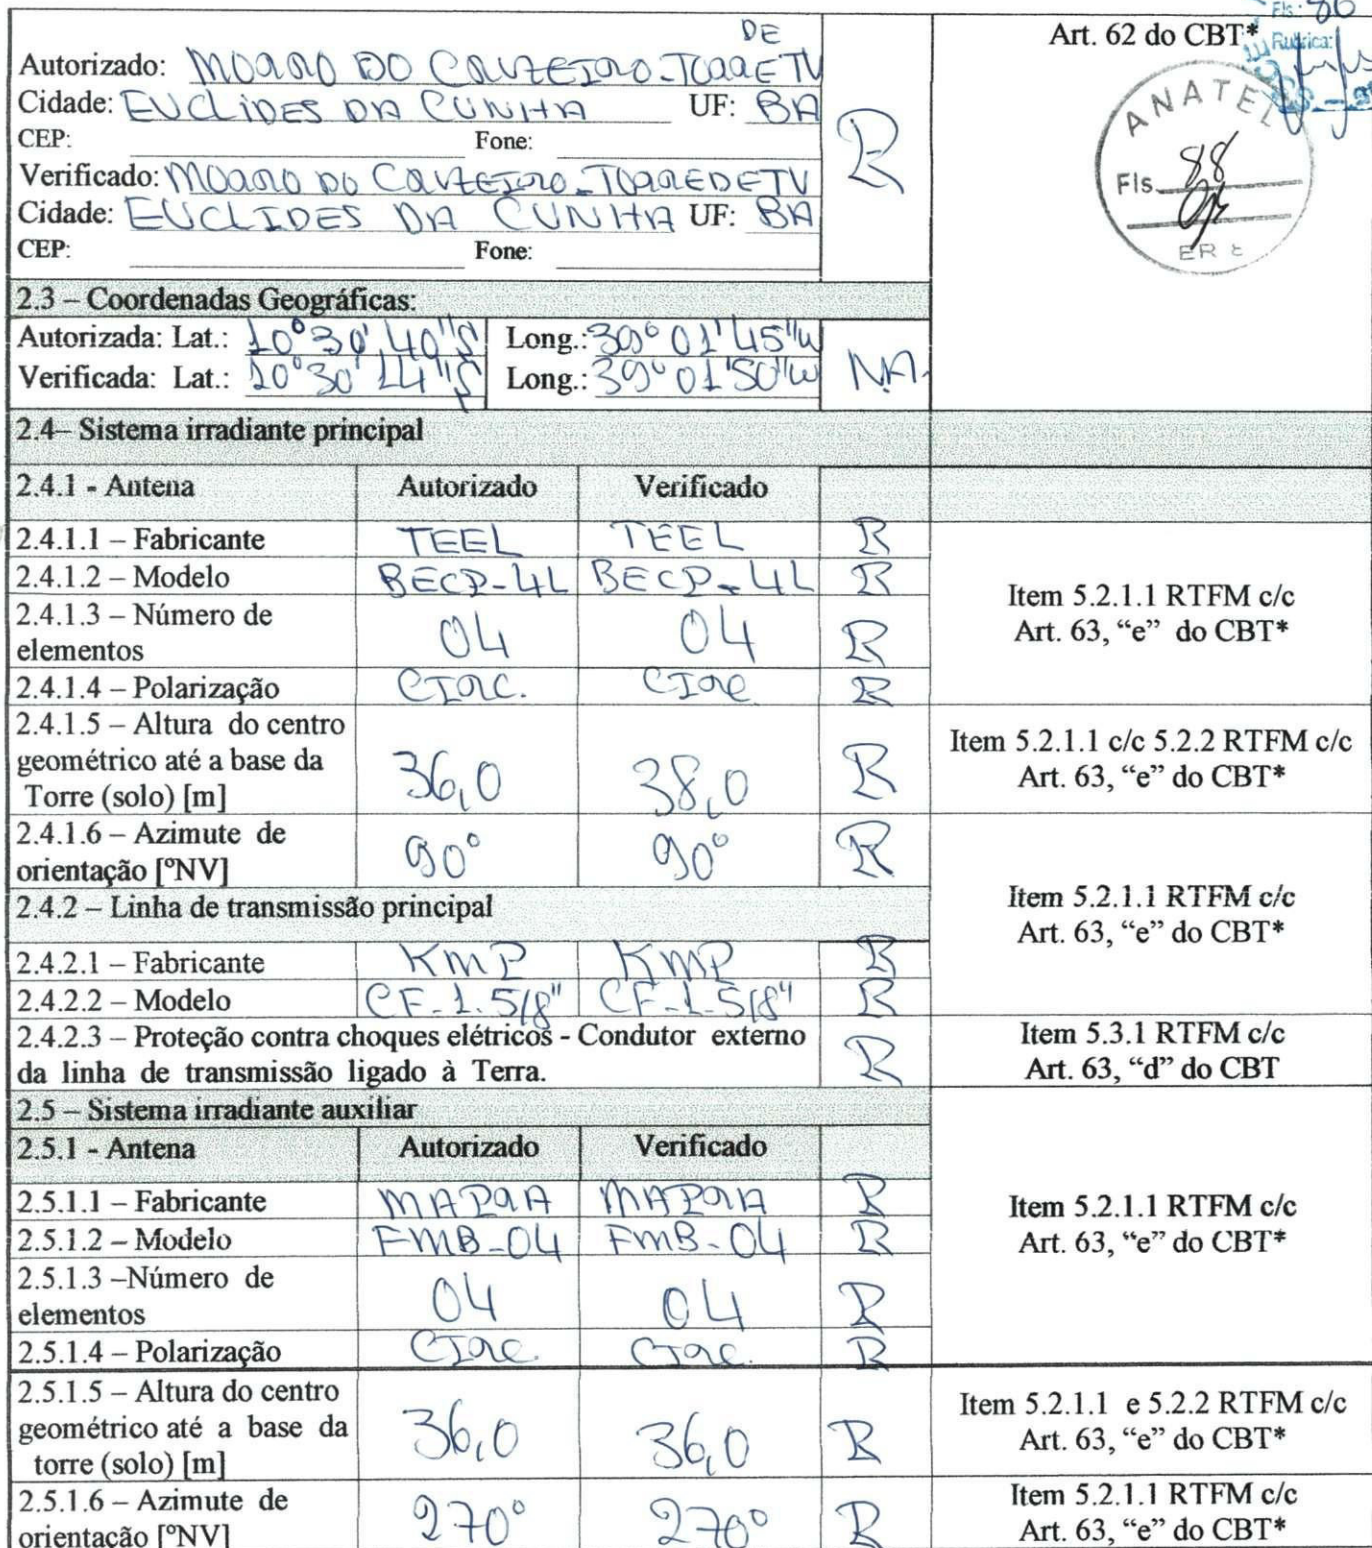 DE
Autorizado: MORRO DO CRUZEIRO-TORRE TV
Cidade: EUCLIDES DA CUNHA UF: BA
CEP: Fone:
Verificado: MORRO DO CRUZEIRO-TORRE DE TV
Cidade: EUCLIDES DA CUNHA UF: BA
CEP: Fone:
R
Art. 62 do CBT*
Fls.: 86
Rubrica:
ANATEL
Fls. 88
2.3 – Coordenadas Geográficas:
Autorizada: Lat.: 10° 30' 40"S Long.: 39° 01' 45"W
Verificada: Lat.: 10° 30' 44"S Long.: 39° 01' 50"W
NA.
2.4– Sistema irradiante principal
2.4.1 - Antena Autorizado Verificado
2.4.1.1 – Fabricante TEEL TEEL R
2.4.1.2 – Modelo BECP-4L BECP-4L R
2.4.1.3 – Número de
elementos 04 04 R
2.4.1.4 – Polarização CIRC. CIRC R
Item 5.2.1.1 RTFM c/c
Art. 63, “e” do CBT*
2.4.1.5 – Altura do centro
geométrico até a base da
Torre (solo) [m] 36,0 38,0 R
Item 5.2.1.1 c/c 5.2.2 RTFM c/c
Art. 63, “e” do CBT*
2.4.1.6 – Azimute de
orientação [ºNV] 90° 90° R
2.4.2 – Linha de transmissão principal
2.4.2.1 – Fabricante KMP KMP R
2.4.2.2 – Modelo CF-1.5/8" CF-1-5/8" R
Item 5.2.1.1 RTFM c/c
Art. 63, “e” do CBT*
2.4.2.3 – Proteção contra choques elétricos - Condutor externo
da linha de transmissão ligado à Terra. R
Item 5.3.1 RTFM c/c
Art. 63, “d” do CBT
2.5 – Sistema irradiante auxiliar
2.5.1 - Antena Autorizado Verificado
2.5.1.1 – Fabricante MAPRA MAPRA R
2.5.1.2 – Modelo FMB-04 FMB-04 R
2.5.1.3 –Número de
elementos 04 04 R
2.5.1.4 – Polarização CIRC. CIRC. R
Item 5.2.1.1 RTFM c/c
Art. 63, “e” do CBT*
2.5.1.5 – Altura do centro
geométrico até a base da
torre (solo) [m] 36,0 36,0 R
Item 5.2.1.1 e 5.2.2 RTFM c/c
Art. 63, “e” do CBT*
2.5.1.6 – Azimute de
orientação [ºNV] 270° 270° R
Item 5.2.1.1 RTFM c/c
Art. 63, “e” do CBT*